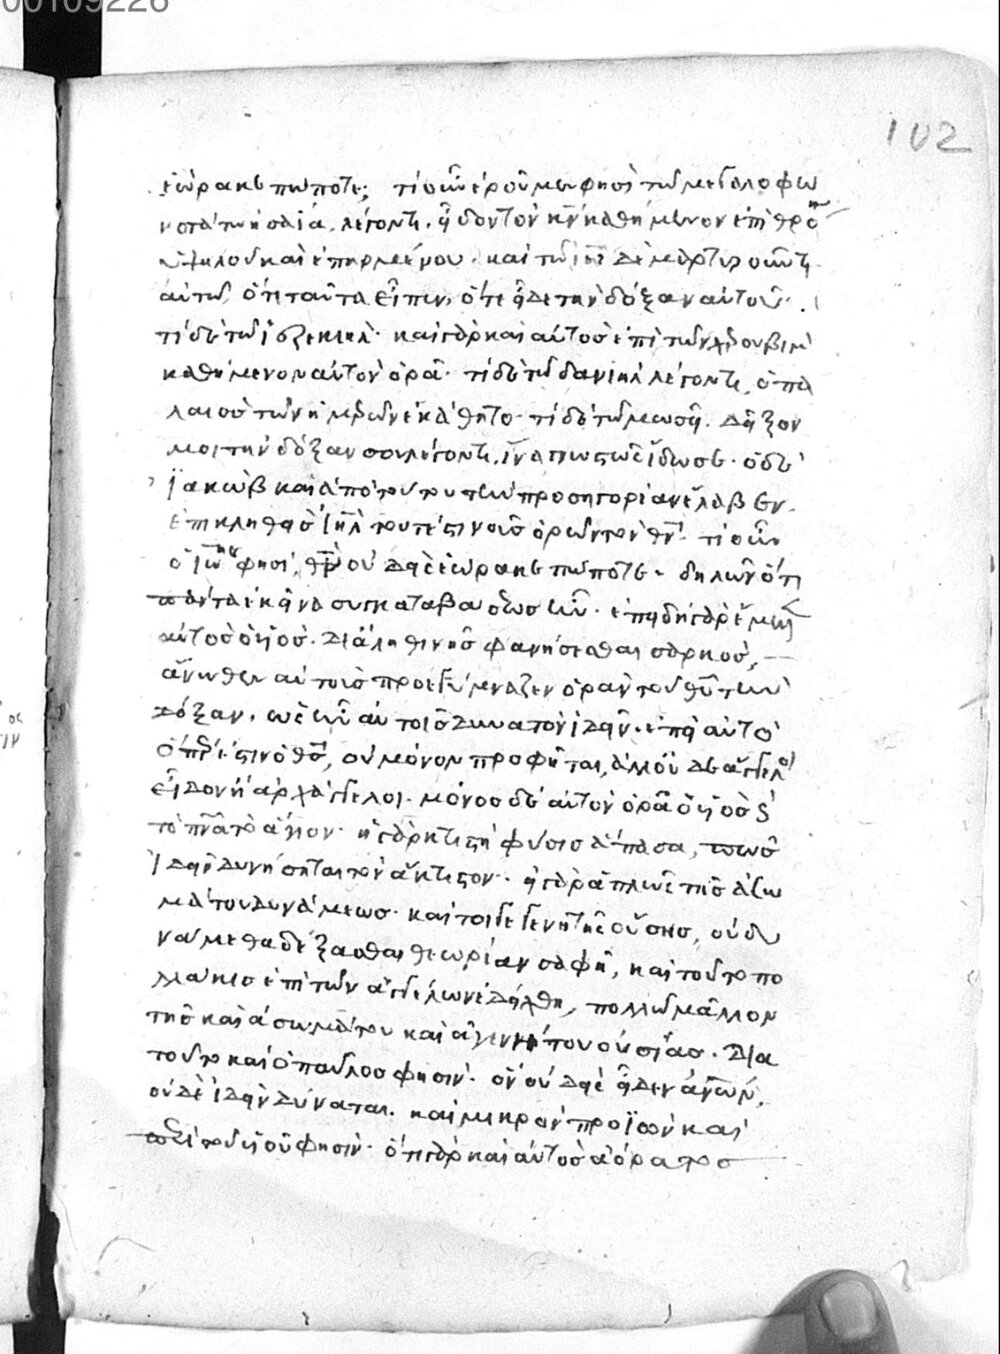 00109226
102
ἑώρακε πώποτε; τί οὖν ἐροῦμεν φησὶ τῶ μεγαλοφω
νοτάτω ἡσαΐα, λέγοντι, εἶδον τὸν κν καθήμενον ἐπὶ θρόν
ὑψηλοῦ καὶ ἐπηρμένου. καὶ τῶ ιω δὲ μαρτυροῦντι
αὐτῶ, ὅτι ταῦτα εἶπεν, ὅτε εἶδε τὴν δόξαν αὐτοῦ.
τί δὲ τῶ ἰεζεκιὴλ. καὶ γὰρ καὶ αὐτὸς ἐπὶ τῶν χερουβὶμ
καθήμενον αὐτὸν ὁρᾶ. τί δὲ τῶ δανιὴλ λέγοντι, ὁ πα
λαιὸς τῶν ἡμερῶν ἐκάθητο. τί δὲ τῶ μωσῆ. δεῖξον
μοι τὴν δόξαν σου λέγοντι, ἵνα γνωστῶς εἴδω σε. ὁ δὲ
ἰακὼβ καὶ ἀπὸ τούτου τὴν προσηγορίαν ἔλαβεν.
ἐπικληθεὶς ιηλ τουτέστι νοῦς ὁρῶν τὸν θν. τί οὖν
ὁ ιω φησί, θν οὐδεὶς ἑώρακε πώποτε. δηλῶν ὅτι
πάντα ἐκεῖνα συγκαταβάσεως ἦν. ἐπειδὴ γὰρ ἔμελλεν
αὐτὸς ὁ υἱὸς. δι ἀληθινῆς φανήσεσθαι σαρκὸς,
ἄνωθεν αὐτοὺς προεγύμναζεν ὁρᾶν τοῦ θυ τὴν
δόξαν, ὡς ἦν αὐτοῖς δυνατὸν ἰδεῖν. ἐπεὶ αὐτὸ
ὅπερ ἐστὶν ὁ θς, οὐ μόνον προφῆται, ἀλλ' οὐδὲ ἄγγελοι
εἶδον ἢ ἀρχάγγελοι. μόνος δὲ αὐτὸν ὁρᾶ ὁ υἱὸς καὶ
τὸ πνα τὸ ἅγιον. ἡ γὰρ κτιστὴ φύσις ἅπασα, πῶς
ἰδεῖν δυνήσεται τὸν ἄκτιστον. εἰ γὰρ ἁπλῶς τῆς ἀσω
μάτου δυνάμεως. καίτοι γε γενητῆς οὔσης, οὐ δυ
νάμεθα δέξασθαι θεωρίαν σαφῆ, καὶ τοῦτο πο
λλάκις ἐπὶ τῶν ἀγγέλων ἐδείχθη, πολλῶ μᾶλλον
τῆς καὶ ἀσωμάτου καὶ ἀγεννήτου οὐσίας. διὰ
τοῦτο καὶ ὁ παῦλος φησὶν. ὃν οὐδεὶς εἶδεν ἀνων,
οὐδὲ ἰδεῖν δύναται. καὶ μικρὸν προϊὼν καὶ
περὶ τοῦ υἱοῦ φησὶν. ὅτι γὰρ καὶ αὐτὸς ἀόρατος